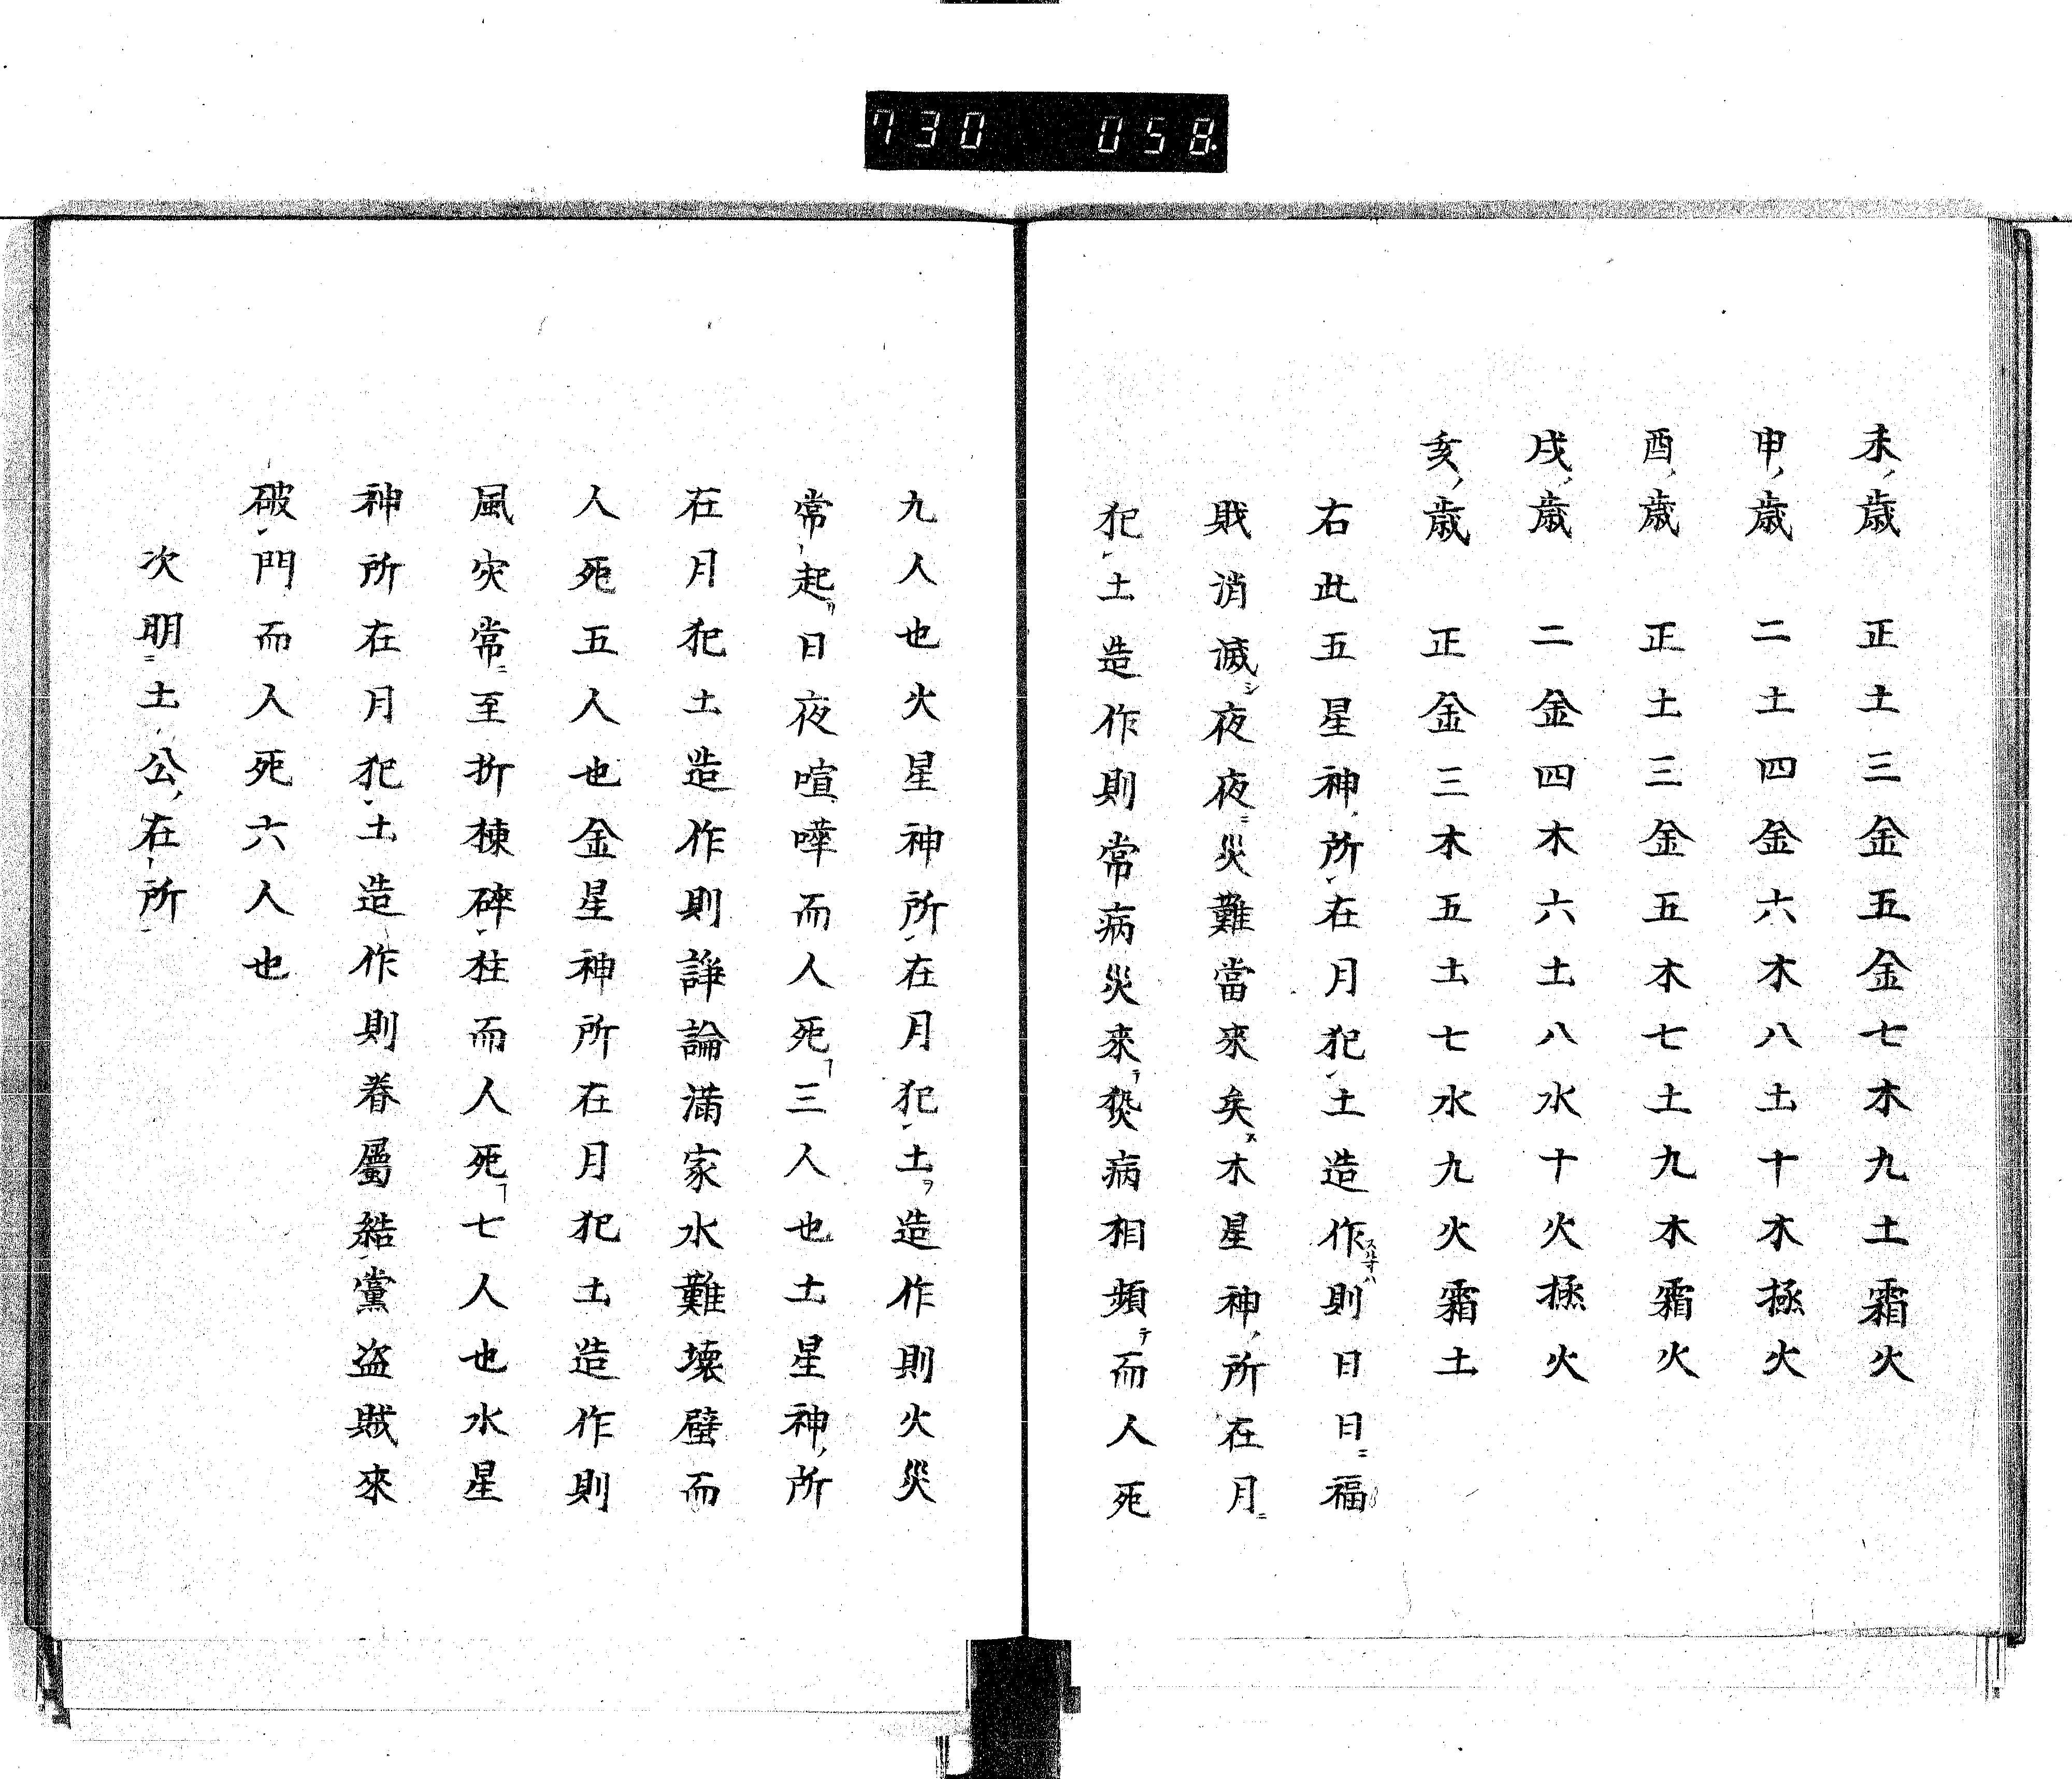 730 058
未ノ歳 正土三金五金七木九土霜火
申ノ歳 二土四金六木八土十木拯火
酉ノ歳 正土三金五木七土九木霜火
戌ノ歳 二金四木六土八水十火拯火
亥ノ歳 正金三木五土七水九火霜土
右此五星神ノ所在月犯土造作スレハ則日日ニ福
戝消滅シ夜夜ニ災難當來矣木星神ノ所在月ニ
犯土造作則常病災来テ病相頻テ而人死
九人也火星神所在月犯土ヲ造作則火災
常起リ日夜喧嘩而人死フ三人也土星神ノ所
在月犯土造作則諍論滿家水難壊壁而
人死五人也金星神所在月犯土造作則
風災常ニ至折棟碎柱而人死フ七人也水星
神所在月犯土造作則眷屬結黨盗賊來
破門而人死六人也
次明ニ土公ノ在所